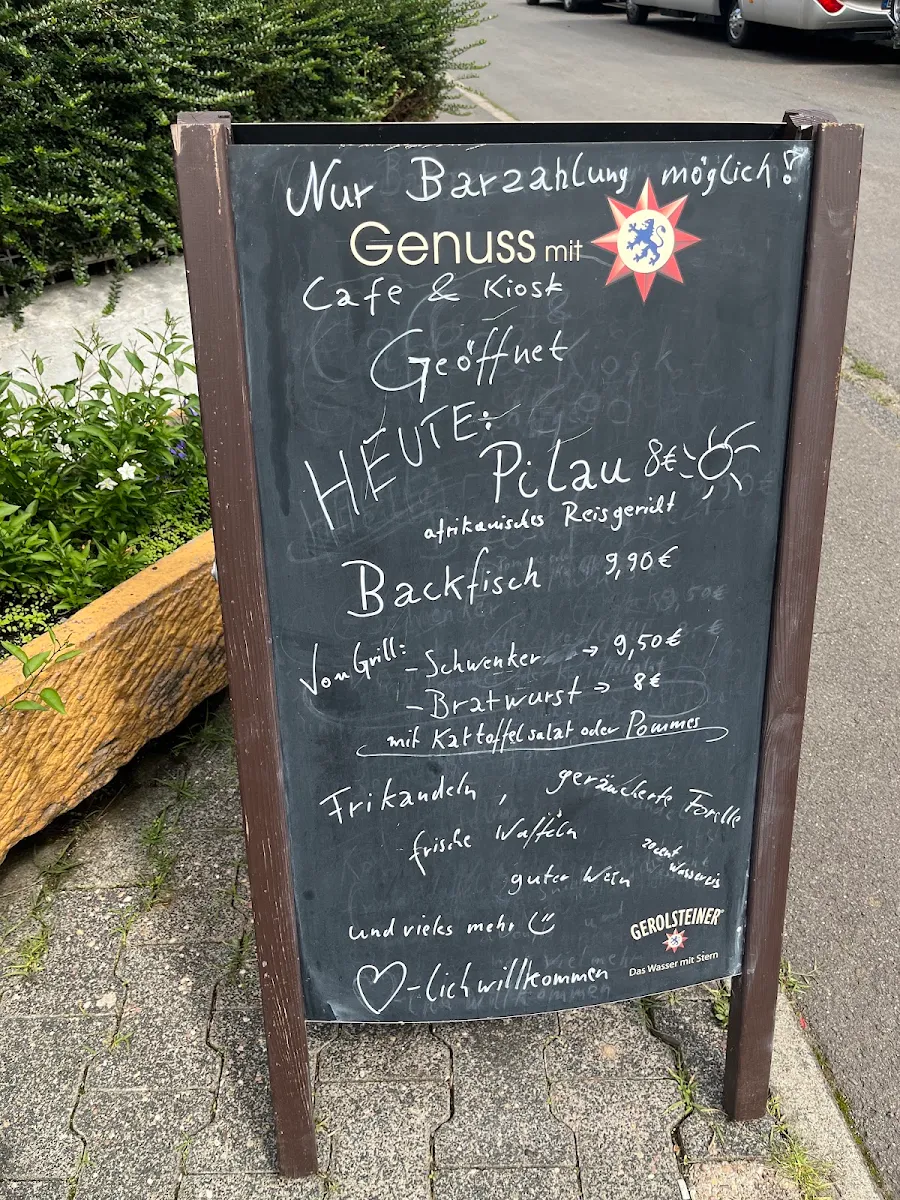 Nur Barzahlung möglich!
Genuss mit
Cafe & Kiosk
Geöffnet
HEUTE:
Pilau 8€
afrikanisches Reisgericht
Backfisch 9,90€
Vom Grill:
- Schwenker → 9,50€
- Bratwurst → 8€
mit Kartoffelsalat oder Pommes
Frikandeln, geräucherte Forelle
frische Waffeln
20cent Wassereis
guter Wein
und vieles mehr
♡-lich willkommen
GEROLSTEINER
Das Wasser mit Stern